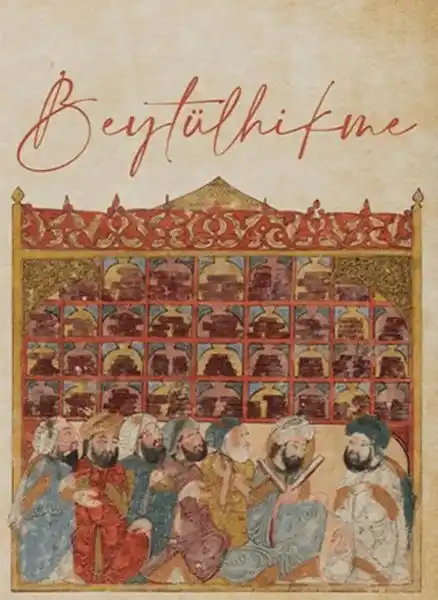 Beytülhikme